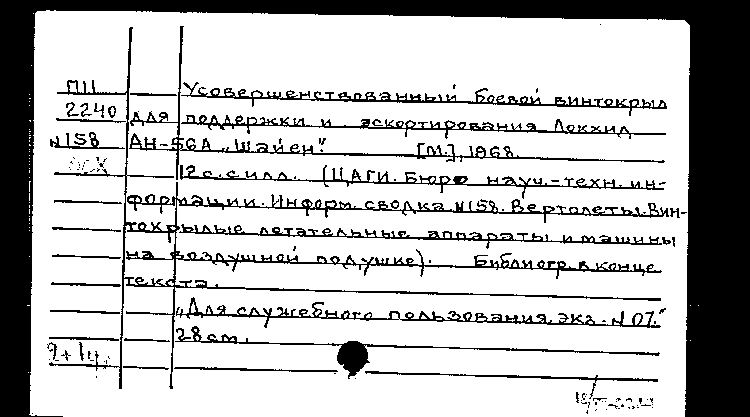 П11 Усовершенствованный боевой винтокрыл
2240 для поддержки и эскортирования Локхид
№158 АН-56А „Шайен". [М.], 1968.
12 с. с илл. (ЦАГИ. Бюро науч.-техн. ин-
формации. Информ. сводка №158. Вертолеты. Вин-
токрылые летательные аппараты и машины
на воздушной подушке). Библиогр. в конце
текста.
„Для служебного пользования. экз. №07."
28 см.